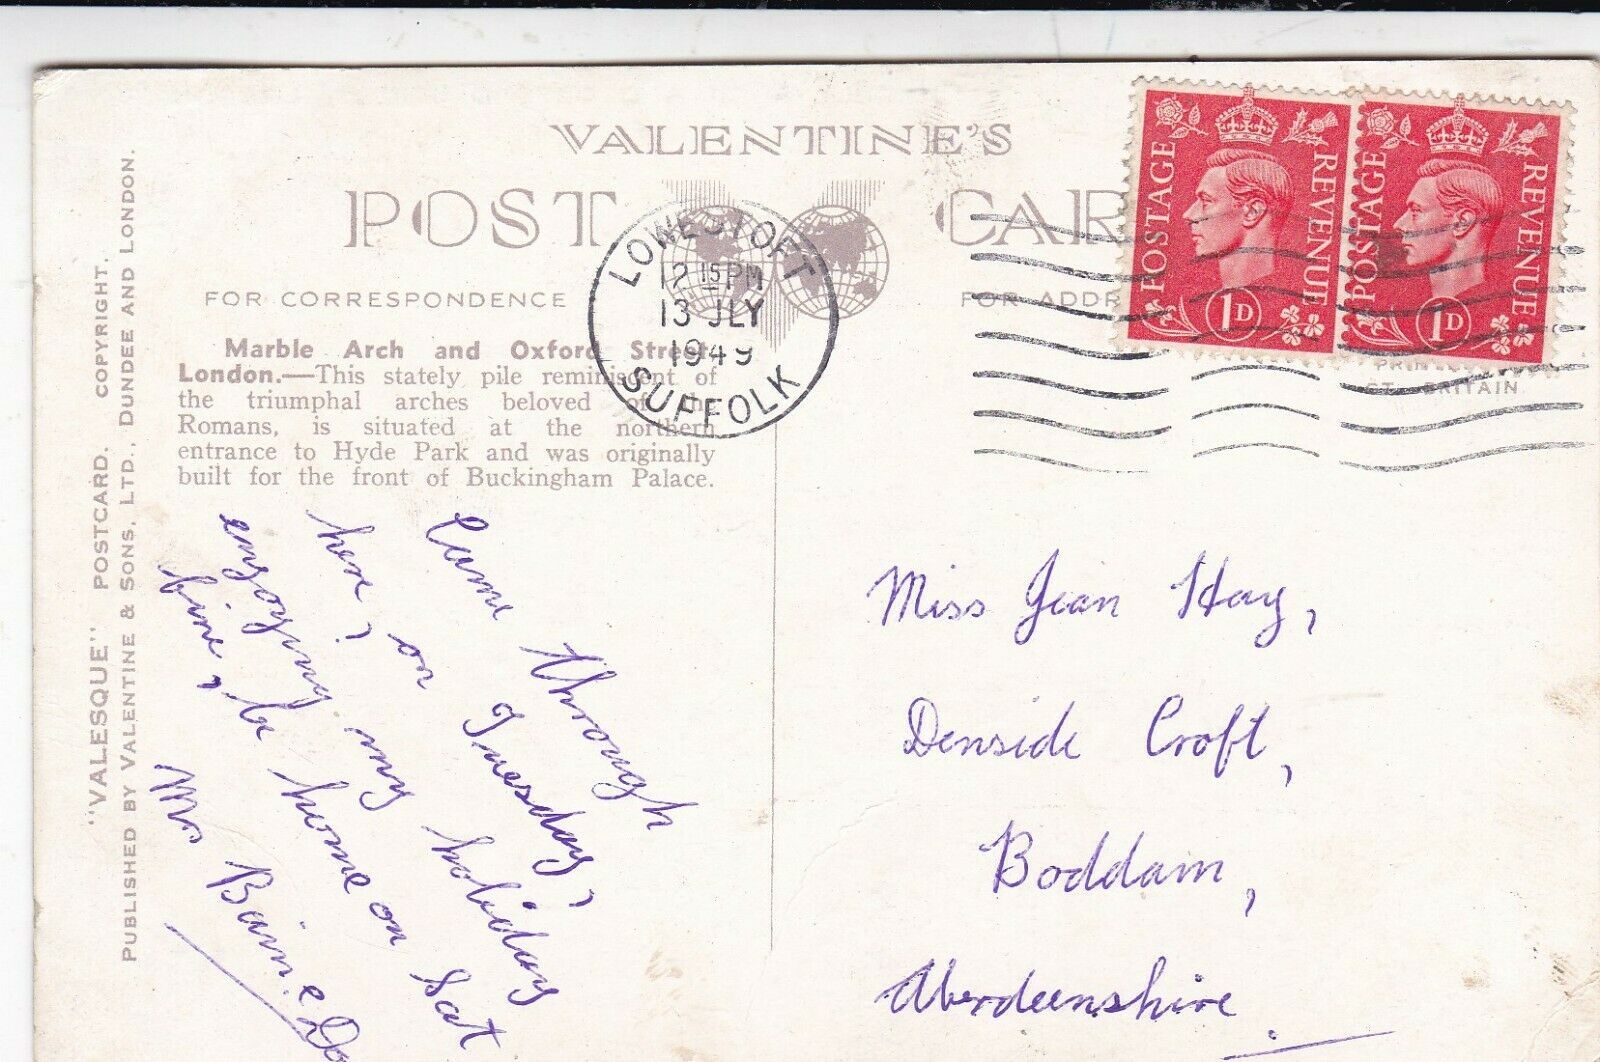 VALENTINE'S
POST CAR
FOR CORRESPONDENCE
FOR ADDR
LOWESTOFT
12 15 PM
13 JLY
1949
SUFFOLK
POSTAGE REVENUE
1D
POSTAGE REVENUE
1D
PRIN
GT. BRITAIN
Marble Arch and Oxford Street,
London.—This stately pile reminiscent of
the triumphal arches beloved of the
Romans, is situated at the northern
entrance to Hyde Park and was originally
built for the front of Buckingham Palace.
"VALESQUE" POSTCARD. COPYRIGHT.
PUBLISHED BY VALENTINE & SONS, LTD., DUNDEE AND LONDON.
Came through
here, on Tuesday,
enjoying my holiday
fine, be home on Sat
Mrs
Miss Jean Hay,
Denside Croft,
Boddam,
Aberdeenshire.